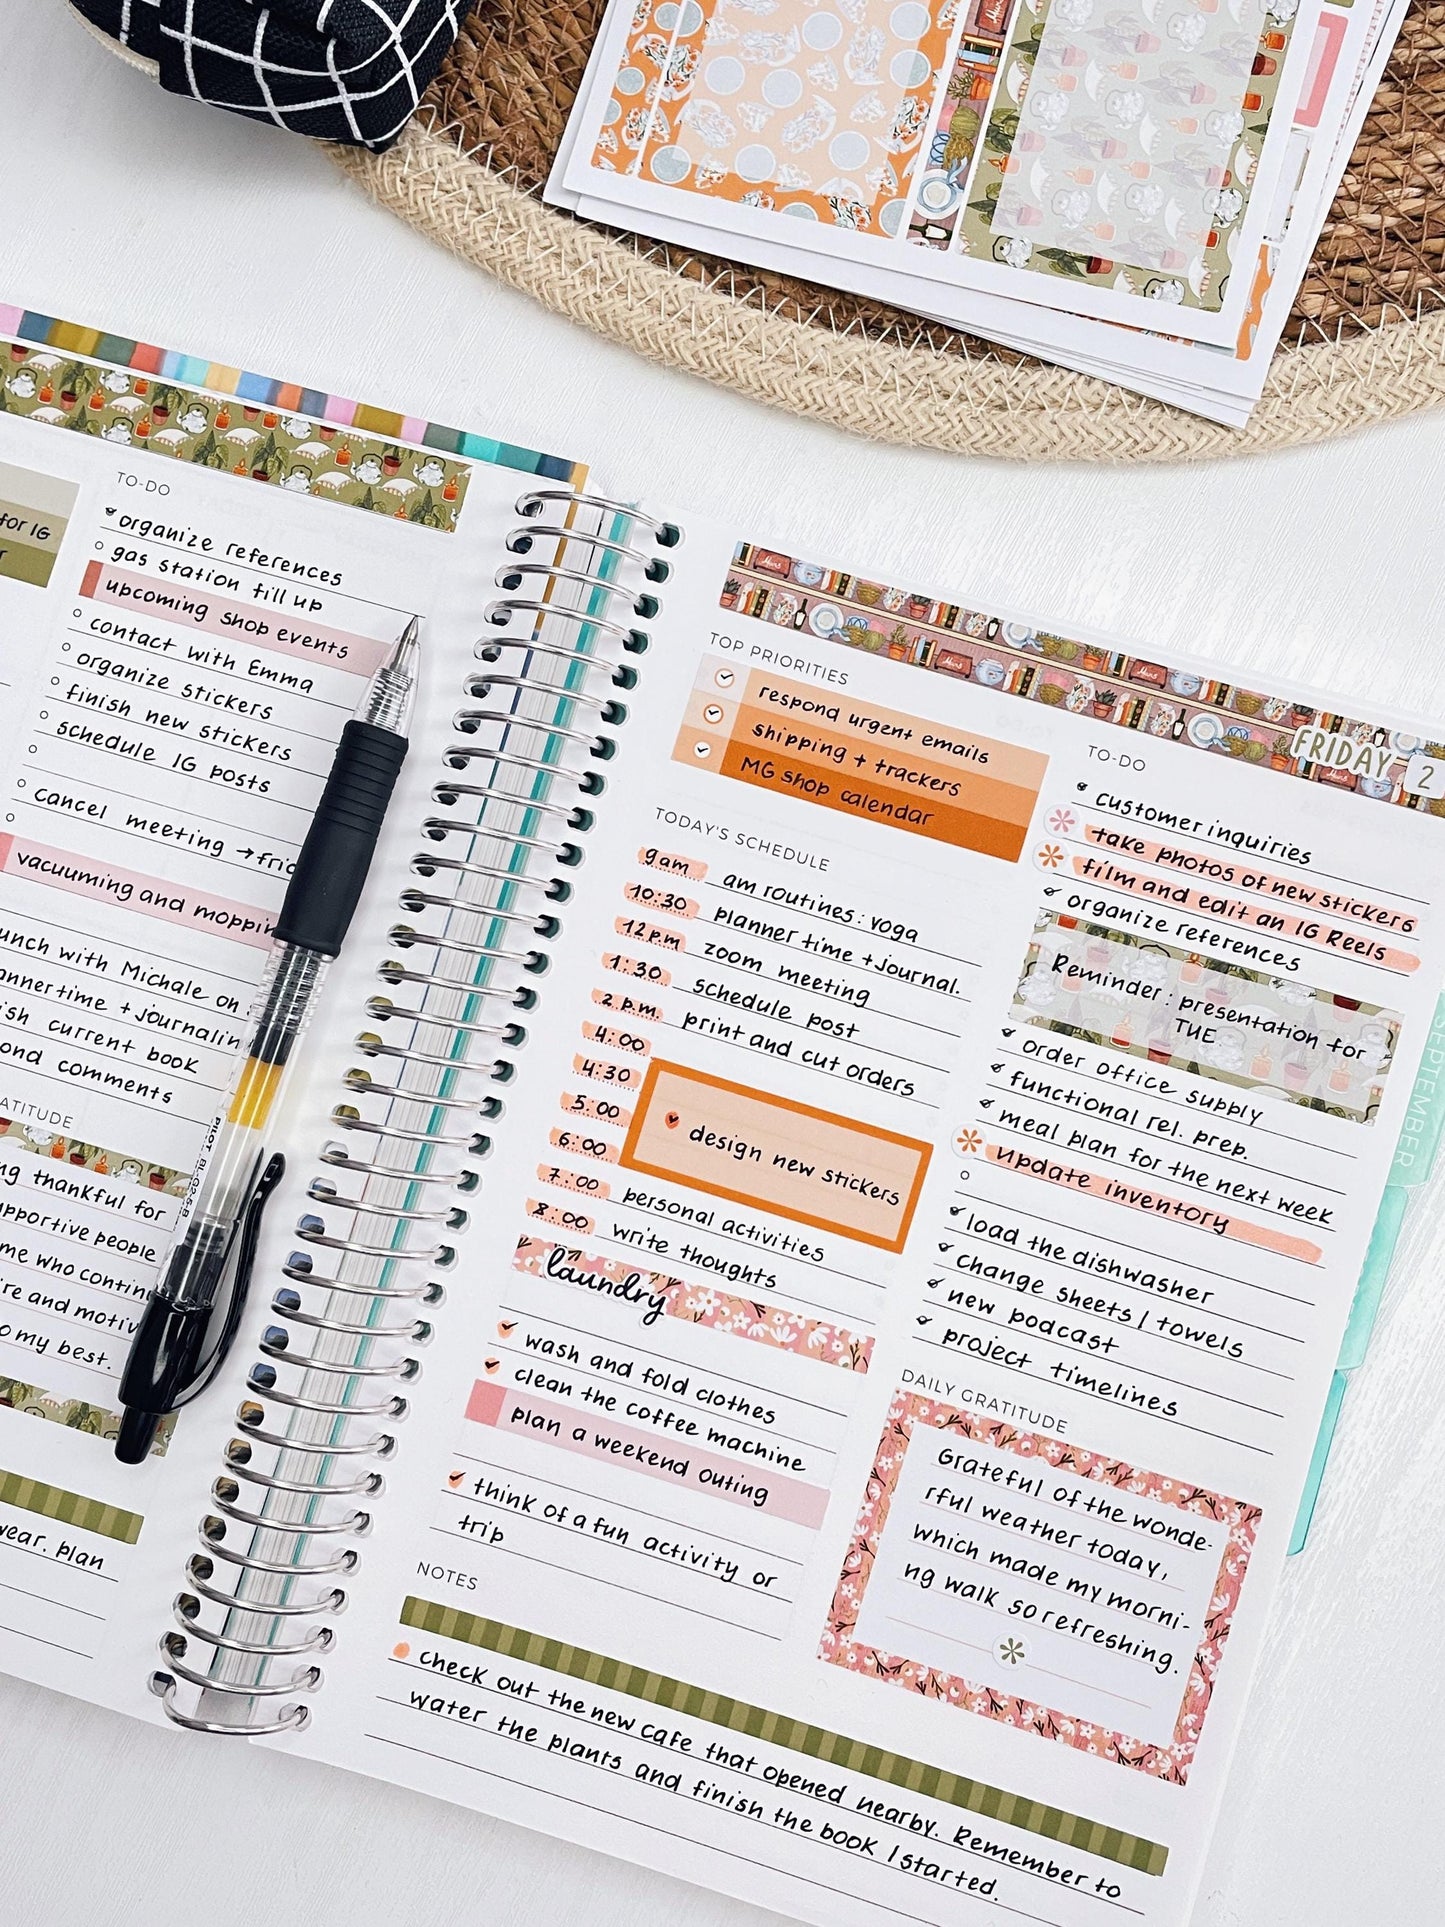 for IG
TO-DO
organize references
gas station fill up
upcoming shop events
contact with Emma
organize stickers
finish new stickers
schedule IG posts
cancel meeting →frid
vacuuming and moppin
unch with Michale on
annertime + journalin
ish current book
ond comments
ATITUDE
ng thankful for
upportive people
me who contin
re and motiv
o my best.
wear. plan
PILOT BL-G2-5-B
TOP PRIORITIES
respond urgent emails
shipping + trackers
MG shop calendar
TODAY'S SCHEDULE
9am am routines: yoga
10:30 planner time + journal.
12 p.m zoom meeting
1:30 schedule post
2 p.m. print and cut orders
4:00
4:30
5:00 design new stickers
6:00
7:00 personal activities
8:00 write thoughts
laundry
wash and fold clothes
clean the coffee machine
plan a weekend outing
think of a fun activity or
trip
NOTES
check out the new cafe that opened nearby. Remember to
water the plants and finish the book I started.
FRIDAY 2
TO-DO
customer inquiries
take photos of new stickers
film and edit an IG Reels
organize references
Reminder: presentation for
TUE
order office supply
functional rel. prep.
meal plan for the next week
update inventory
load the dishwasher
change sheets / towels
new podcast
project timelines
DAILY GRATITUDE
Grateful of the wonde-
rful weather today,
which made my morni-
ng walk so refreshing.
SEPTEMBER